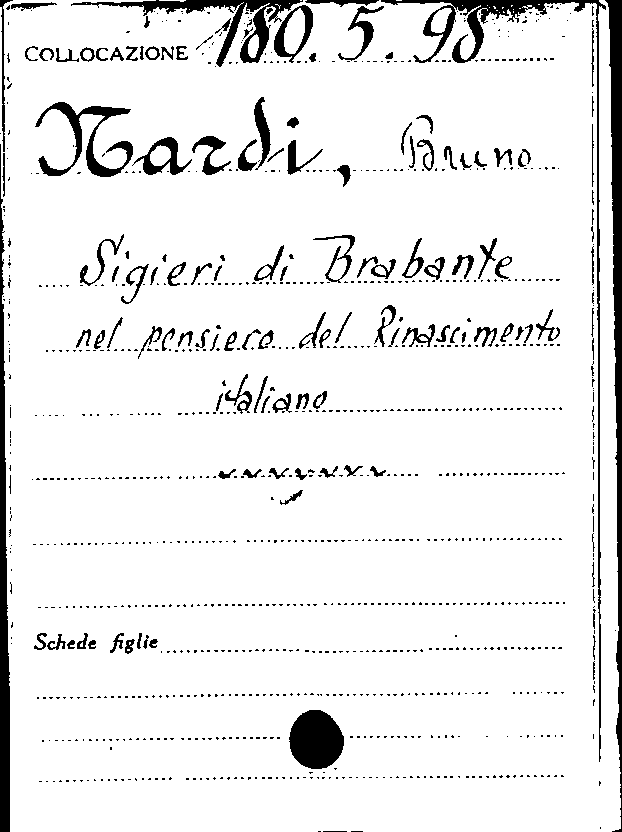 COLLOCAZIONE 180.5.98
Nardi, Bruno
Sigieri di Brabante
nel pensiero del Rinascimento
italiano
Schede figlie